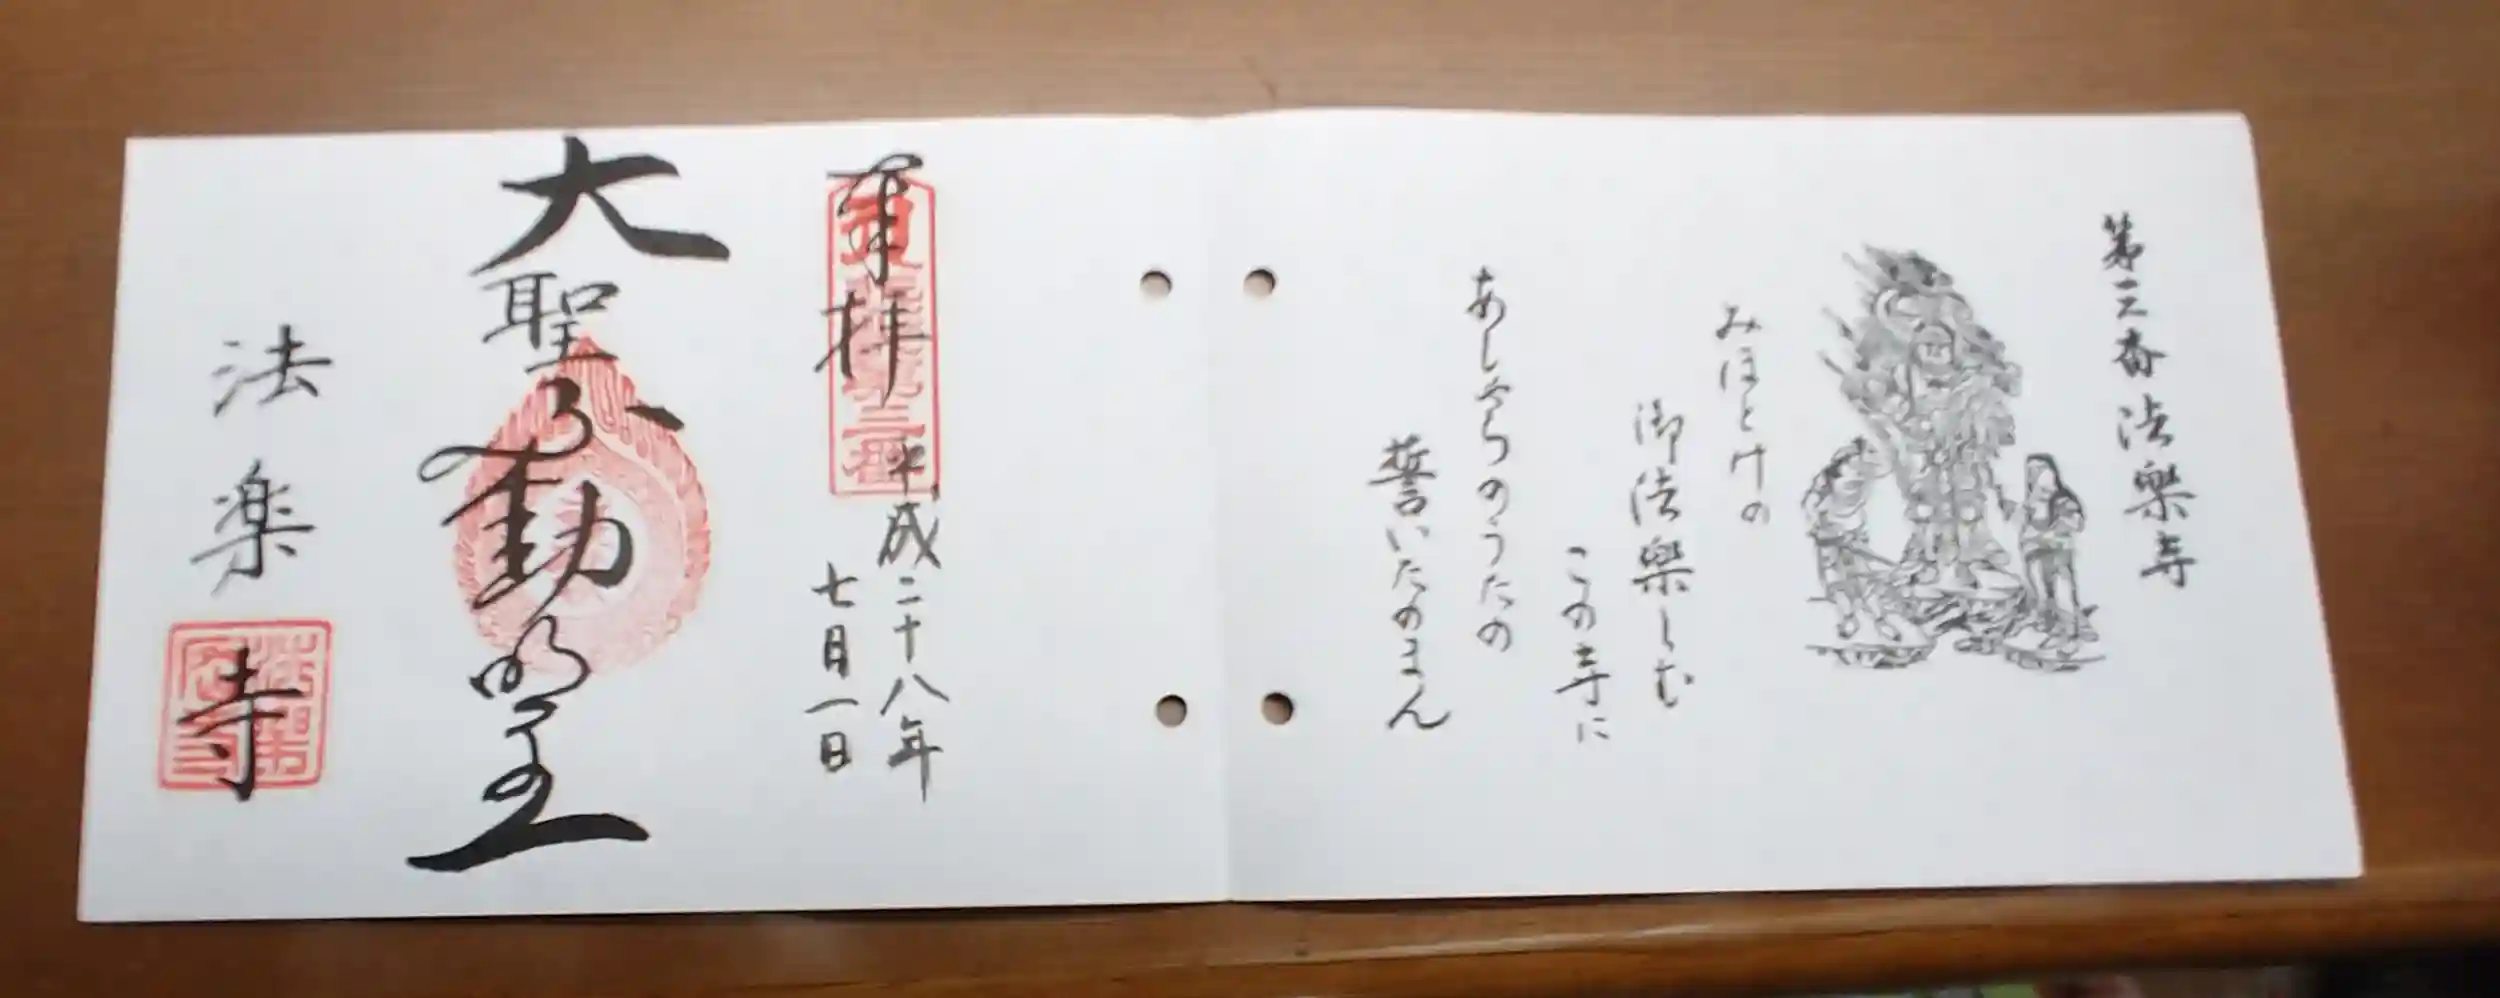 第三番 法樂寺
みほとけの
御法樂しむ
この寺に
あしやらのうたの
誓いたのまん
奉拝
平成二十八年
七月一日
大聖不動明王
法楽寺